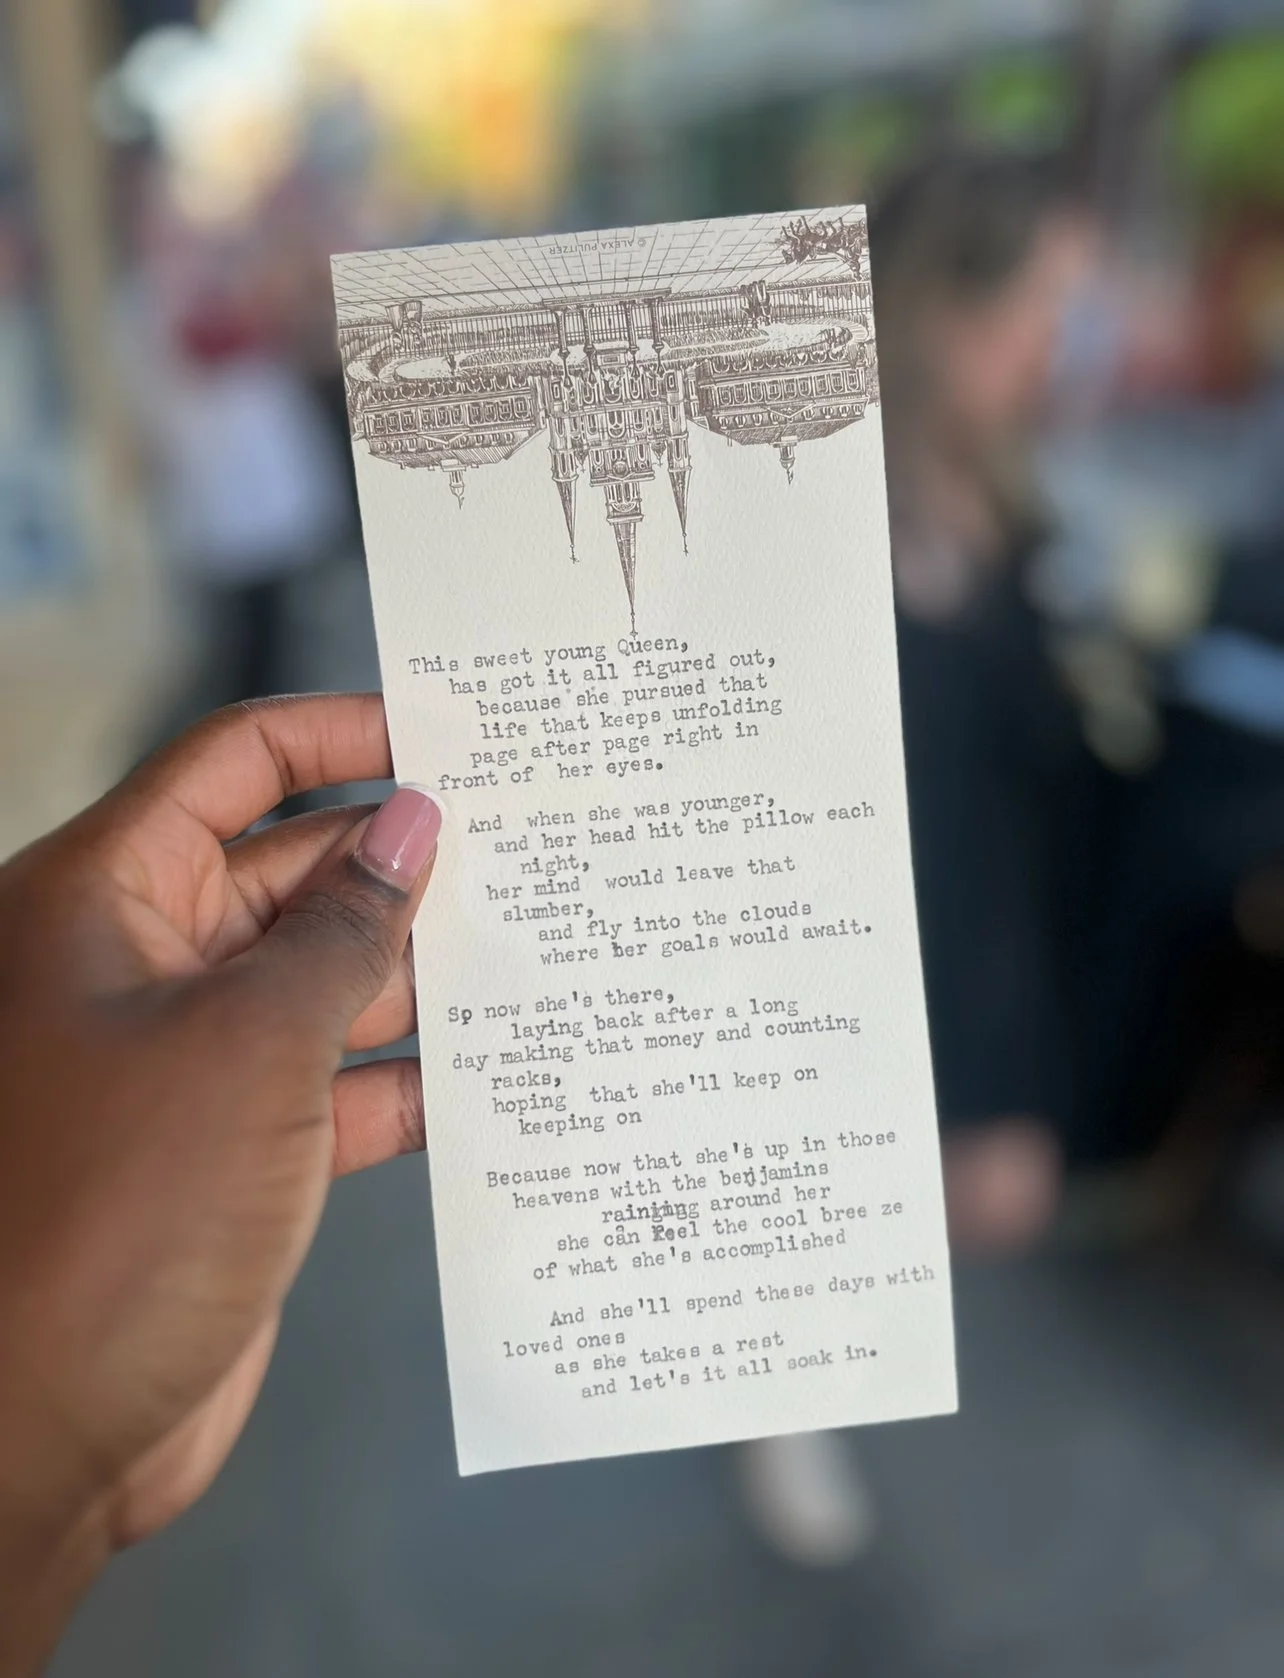 © ALEXA PULITZER
This sweet young Queen,
has got it all figured out,
because she pursued that
life that keeps unfolding
page after page right in
front of her eyes.
And when she was younger,
and her head hit the pillow each
night,
her mind would leave that
slumber,
and fly into the clouds
where her goals would await.
Sp now she's there,
laying back after a long
day making that money and counting
racks,
hoping that she'll keep on
keeping on
Because now that she's up in those
heavens with the benjamins
raining around her
she can feel the cool bree ze
of what she's accomplished
And she'll spend these days with
loved ones
as she takes a rest
and let's it all soak in.